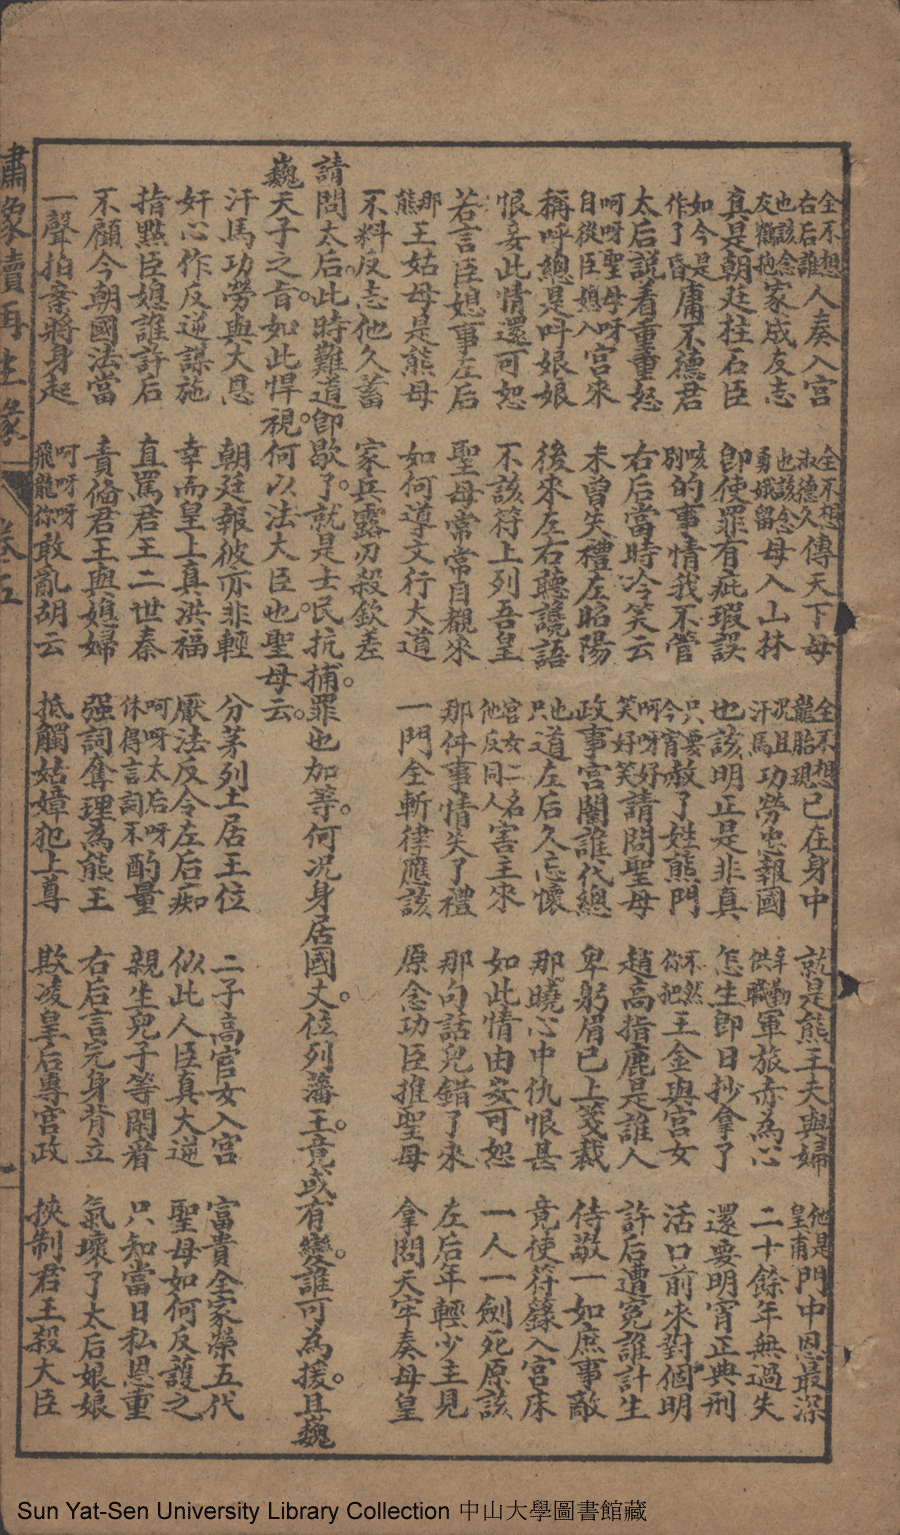 全不想右后誰人奏入宮　全不想淑德久傳天下母　全不想龍胎現已在身中　就是熊王夫與婦　他是皇甫門中恩最深
也該念友鶴抱家成友志　也該念勇娥留母入山林　況且汗馬功勞忠報國　辛勤供職軍旅亦為心　二十餘年無過失
真是朝廷柱石臣　即使罪有疵瑕誤　也該明正是非真　怎生即日抄拿了　還要明宵正典刑
如今是作了昏庸不德君　咳別的事情我不管　只要今宵赦了姓熊門　不然你把王金與宮女　活口前來對個明
太后說着重重怒　右后當時冷笑云　呵呀好笑好笑請問聖母　趙高指鹿是誰人　許后遭冤誰計生
呵呀聖母呀自從臣媳入宮來　未曾失禮左昭陽　政事宮闈誰代總　卑躬屑已上箋裁　侍敬一如庶事敵
稱呼總是叫娘娘　後來左右聽讒語　也只道左后久忘懷　那曉心中仇恨甚　竟使符籙入宮床
恨妾此情還可恕　不該符上列吾皇　宮女二名他反同人害主來　如此情由安可恕　一人一劍死原該
若言臣媳事左后　聖母常常自覩來　那件事情失了禮　那句話兒錯了來　左后年輕少主見
那熊王姑母是熊母　如何導文行大道　一門全斬律應該　原念功臣推聖母　拿問天牢奏母皇
不料反志他久蓄　家兵露刃殺欽差
請問太后。此時難道即歇了。就是士民抗捕。罪也加等。何況身居國丈。位列藩王。竟或有變。誰可為援。且巍
巍天子之旨。如此悍視。何以法大臣也聖母云。
汗馬功勞與大恩　朝廷報彼亦非輕　分茅列土居王位　二子高官女入宮　富貴全家榮五代
奸心作反逆謀施　幸而皇上真洪福　厭法反令左后痴　似此人臣真大逆　聖母如何反護之
指點臣媳誰許后　直罵君王二世秦　呵呀太后呀休得言詞不酌量　親生兒子等閑看　只知當日私恩重
不顧今朝國法當　責備君王與媳婦　强詞奪理為熊王　右后言完身背立　氣壞了太后娘娘
一聲拍案將身起　呵呀呀飛龍你敢亂胡云　抵觸姑嫜犯上尊　欺凌皇后專宮政　挾制君王殺大臣
繡像續再生緣　卷五　一
Sun Yat-Sen University Library Collection 中山大學圖書館藏